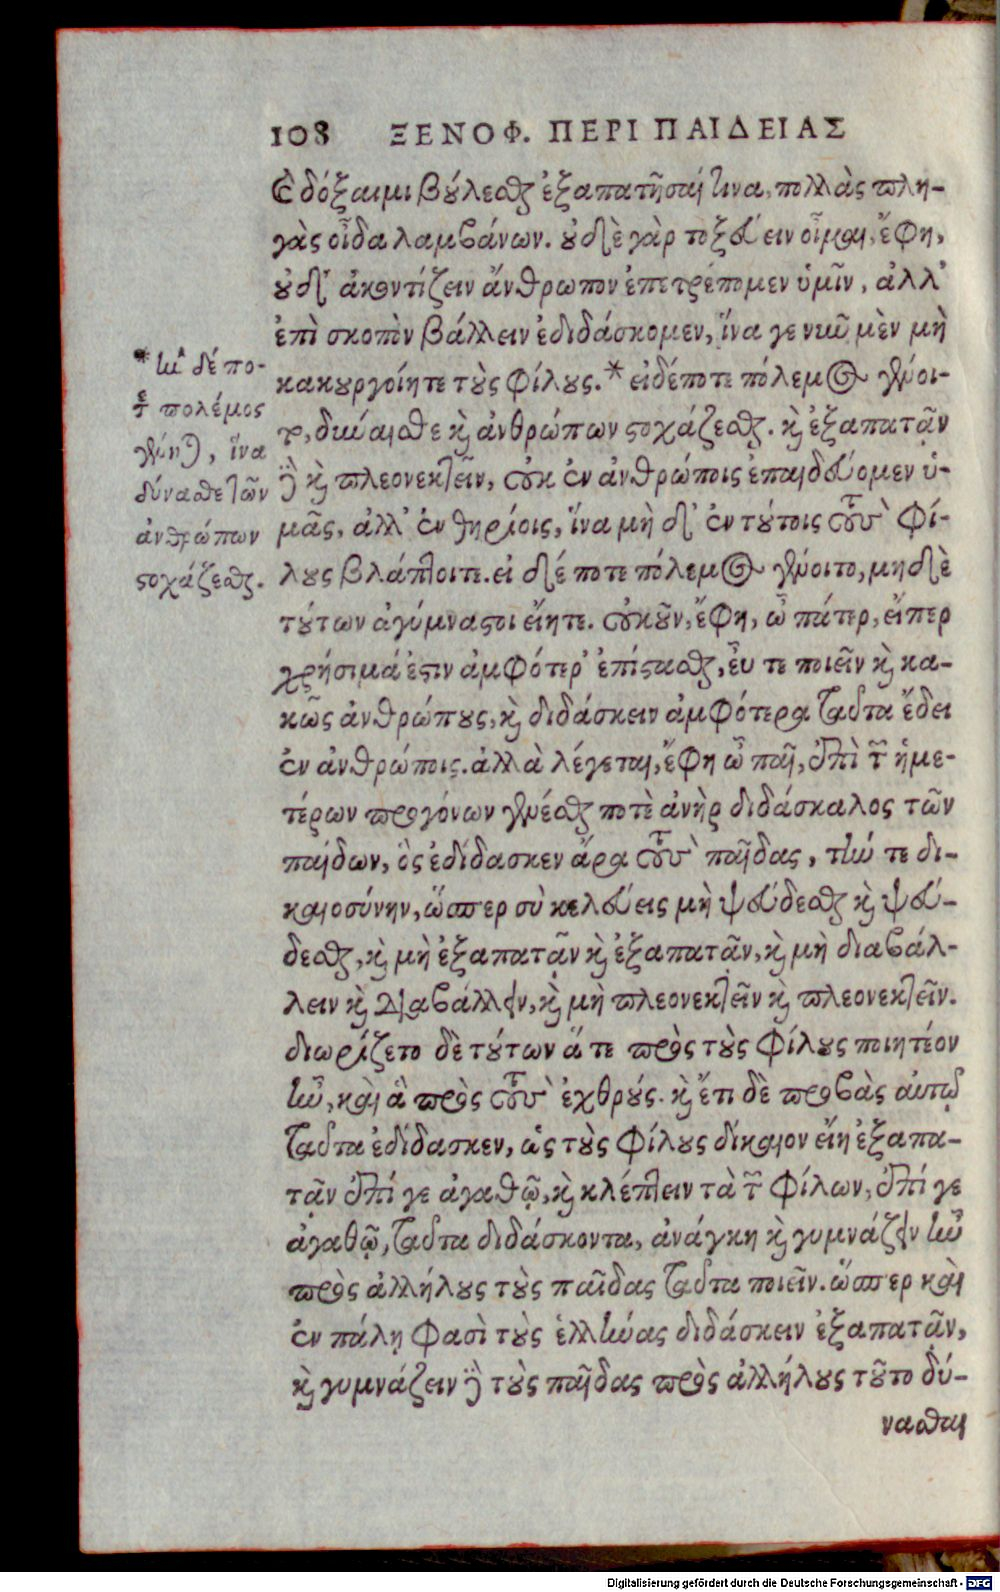 108 ΞΕΝΟΦ. ΠΕΡΙ ΠΑΙΔΕΙΑΣ
δόξαιμι βούλεσθαι ἐξαπατῆσαί τινα, πολλὰς πλη-
γὰς οἶδα λαμβάνων. οὐδὲ γὰρ τοξεύειν οἶμαι, ἔφη,
οὐδ' ἀκοντίζειν ἄνθρωπον ἐπετρέπομεν ὑμῖν, ἀλλ'
ἐπὶ σκοπὸν βάλλειν ἐδιδάσκομεν, ἵνα γε νῦν μὲν μὴ
κακουργοίητε τοὺς φίλους. * εἰ δέ ποτε πόλεμος γένοι-
το, δύναισθε καὶ ἀνθρώπων στοχάζεσθαι. καὶ ἐξαπατᾷν
δὲ καὶ πλεονεκτεῖν, οὐκ ἐν ἀνθρώποις ἐπαιδεύομεν ὑ-
μᾶς, ἀλλ' ἐν θηρίοις, ἵνα μὴ δ' ἐν τούτοις τοὺς φί-
λους βλάπτοιτε. εἰ δέ ποτε πόλεμος γένοιτο, μηδὲ
τούτων ἀγύμναστοι εἴητε. οὐκοῦν, ἔφη, ὦ πάτερ, εἴπερ
χρήσιμά ἐστιν ἀμφότερ' ἐπίστασθαι, εὖ τε ποιεῖν καὶ κα-
κῶς ἀνθρώπους, καὶ διδάσκειν ἀμφότερα ταῦτα ἔδει
ἐν ἀνθρώποις. ἀλλὰ λέγεται, ἔφη ὦ παῖ, ἐπὶ τῶν ἡμε-
τέρων προγόνων γενέσθαι ποτὲ ἀνὴρ διδάσκαλος τῶν
παίδων, ὃς ἐδίδασκεν ἄρα τοὺς παῖδας, τήν τε δι-
καιοσύνην, ὥσπερ σὺ κελεύεις μὴ ψεύδεσθαι καὶ ψεύ-
δεσθαι, καὶ μὴ ἐξαπατᾷν καὶ ἐξαπατᾷν, καὶ μὴ διαβάλ-
λειν καὶ διαβάλλειν, καὶ μὴ πλεονεκτεῖν καὶ πλεονεκτεῖν.
διωρίζετο δὲ τούτων ἅ τε πρὸς τοὺς φίλους ποιητέον
ἦν, καὶ ἃ πρὸς τοὺς ἐχθρούς. καὶ ἔτι δὲ προβὰς
ταῦτα ἐδίδασκεν, ὡς τοὺς φίλους δίκαιον εἴη ἐξαπα-
τᾷν ἐπί γε ἀγαθῷ, καὶ κλέπτειν τὰ τῶν φίλων, ἐπί γε
ἀγαθῷ, ταῦτα διδάσκοντα, ἀνάγκη καὶ γυμνάζειν ἦν
πρὸς ἀλλήλους τοὺς παῖδας ταῦτα ποιεῖν. ὥσπερ καὶ
ἐν πάλῃ φασὶ τοὺς ἕλληνας διδάσκειν ἐξαπατᾷν,
καὶ γυμνάζειν δὲ τοὺς παῖδας πρὸς ἀλλήλους τοῦτο δύ-
νασθαι
* ἢν δέ πο-
τε πολέμος
γένηται, ἵνα
δύνασθε τῶν
ἀνθρώπων
στοχάζεσθαι.
Digitalisierung gefördert durch die Deutsche Forschungsgemeinschaft - DFG